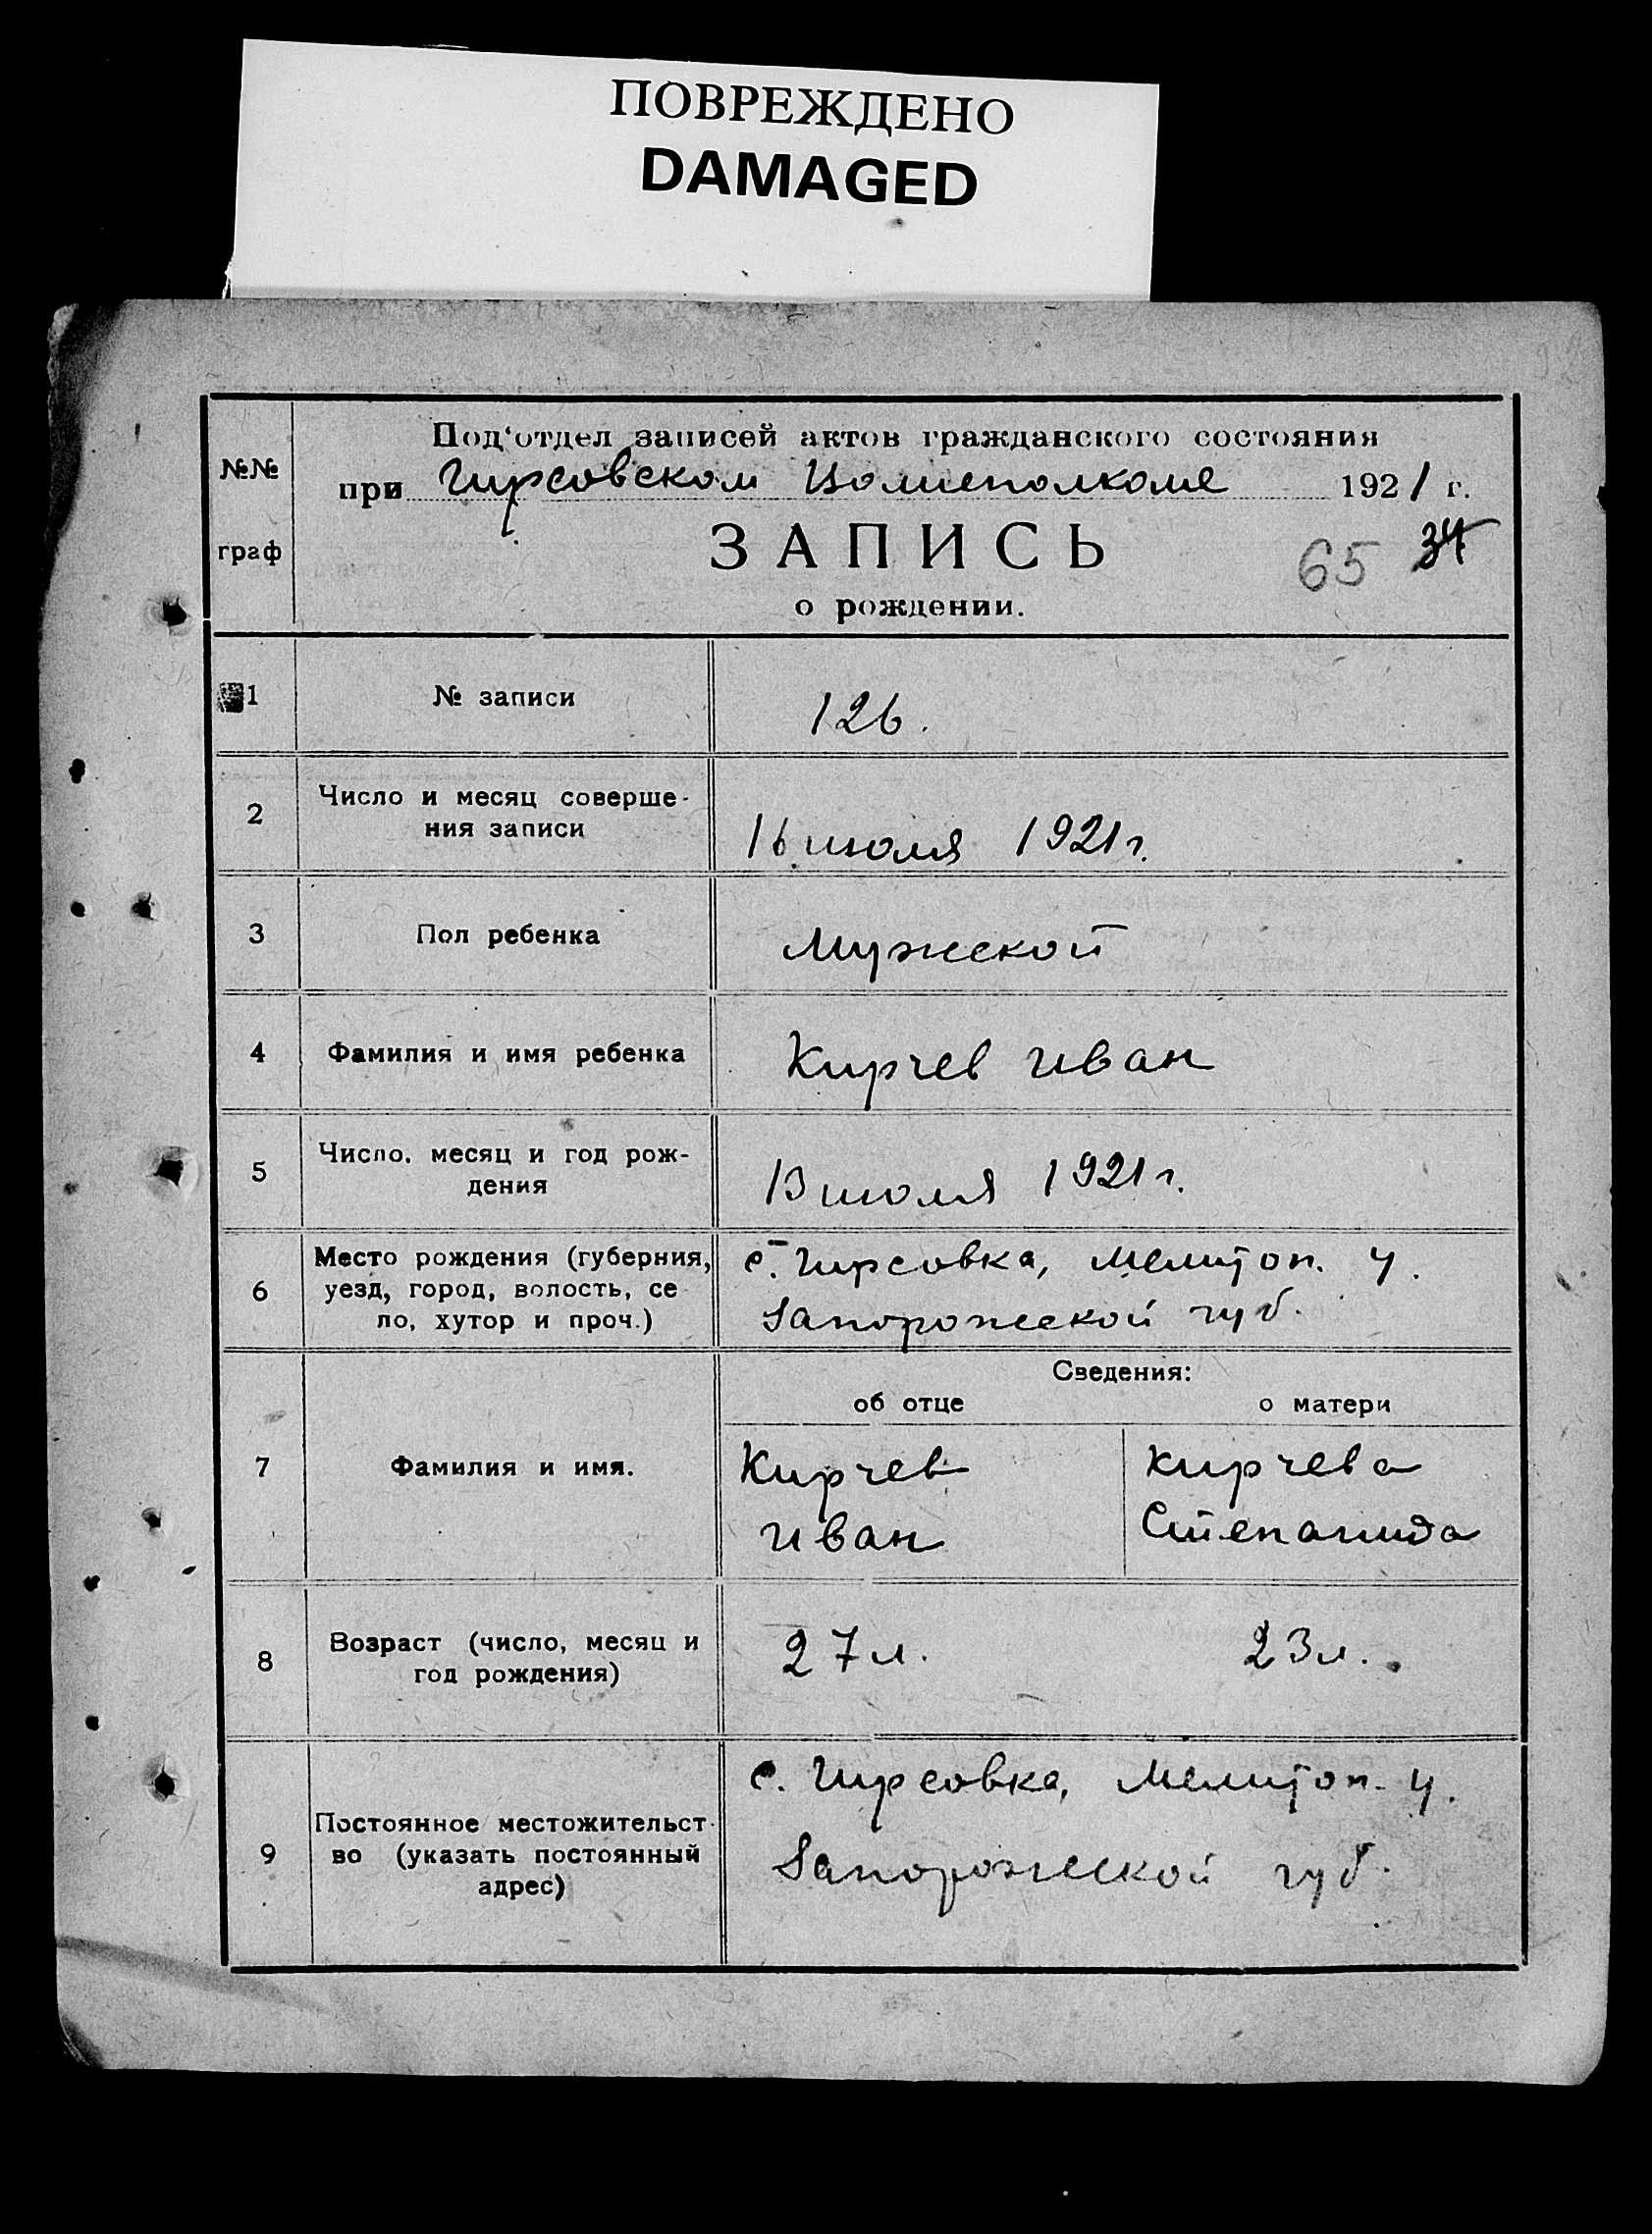 ПОВРЕЖДЕНО
DAMAGED
№№ граф
Под'отдел записей актов гражданского состояния
при Гирсовском Волисполкоме 1921 г.
ЗАПИСЬ
65 34
о рождении.
1 № записи 126.
2 Число и месяц соверше-
ния записи 16 июля 1921 г.
3 Пол ребенка Мужской
4 Фамилия и имя ребенка Кирчев Иван
5 Число, месяц и год рож-
дения 13 июля 1921 г.
6 Место рождения (губерния, с. Гирсовка, Мелитоп. у.
уезд, город, волость, се
ло, хутор и проч.) Запорожской губ.
Сведения:
об отце о матери
7 Фамилия и имя. Кирчев Кирчева
Иван Степанида
8 Возраст (число, месяц и
год рождения) 27 л. 23 л.
с. Гирсовка, Мелитоп. у.
9 Постоянное местожительст-
во (указать постоянный
адрес) Запорожской губ.